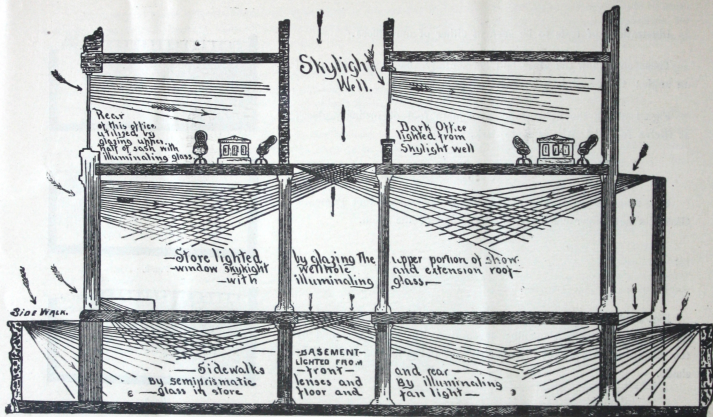 Skylight
Well.
Rear
of this office
utilized by
glazing upper
half of sash with
illuminating glass.
Dark Office
lighted from
Skylight well
—Store lighted by glazing the upper portion of show
—window skykight wellhole and extension roof—
—with illuminating glass—
SIDE WALK.
—Sidewalks —BASEMENT— and rear
LIGHTED FROM
By semiprismatic —front— By illuminating
—glass in store lenses and fan light—
floor and